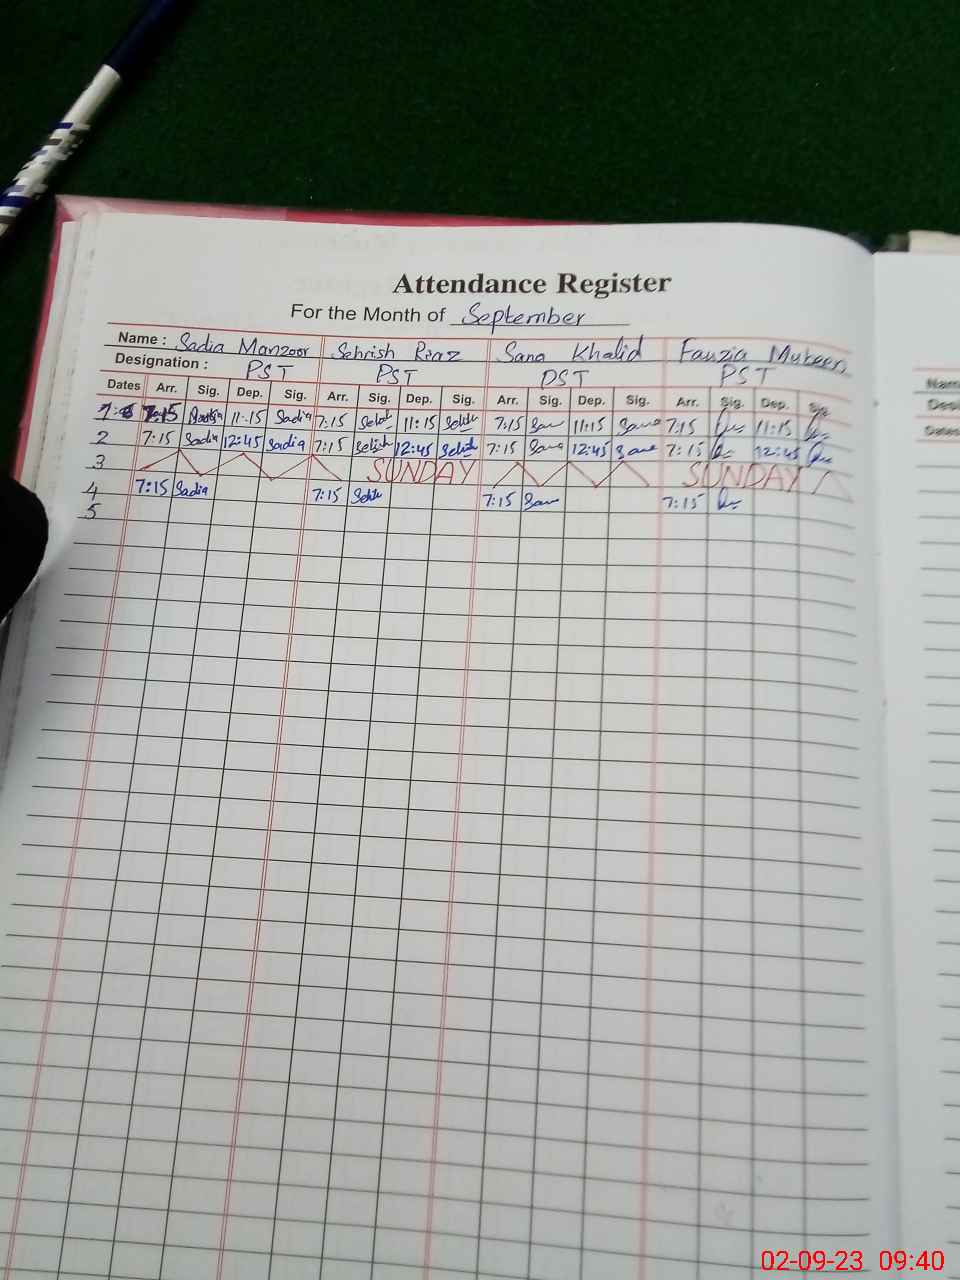 Attendance Register
For the Month of September
Name : Sadia Manzoor Sehrish Riaz Sana Khalid Fauzia Mubeen
Designation : PST PST PST PST
Dates Arr. Sig. Dep. Sig. Arr. Sig. Dep. Sig. Arr. Sig. Dep. Sig. Arr. Sig. Dep. Sig.
7:15 Sadia 11:15 Sadia 7:15 11:15 7:15 San 11:15 Sana 7:15 11:15
2 7:15 Sadia 12:45 Sadia 7:15 12:45 7:15 Sana 12:45 Sana 7:15 12:45
3 SUNDAY SUNDAY
4 7:15 Sadia 7:15 7:15 San 7:15
5
Name
Desi
Dates
02-09-23 09:40